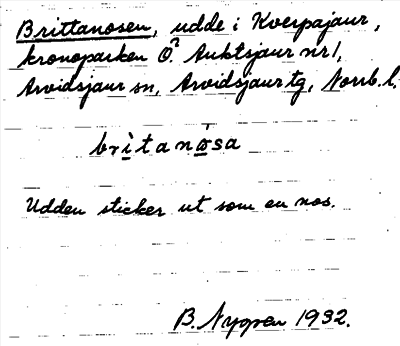 Brittanosen, udde i Kverpajaur,
kronoparken Ö? Auktsjaur nr1,
Arvidsjaur sn, Arvidsjaur tg, Norrb. l.
britanosa
Udden sticker ut som en nos.
B. Nygren 1932.